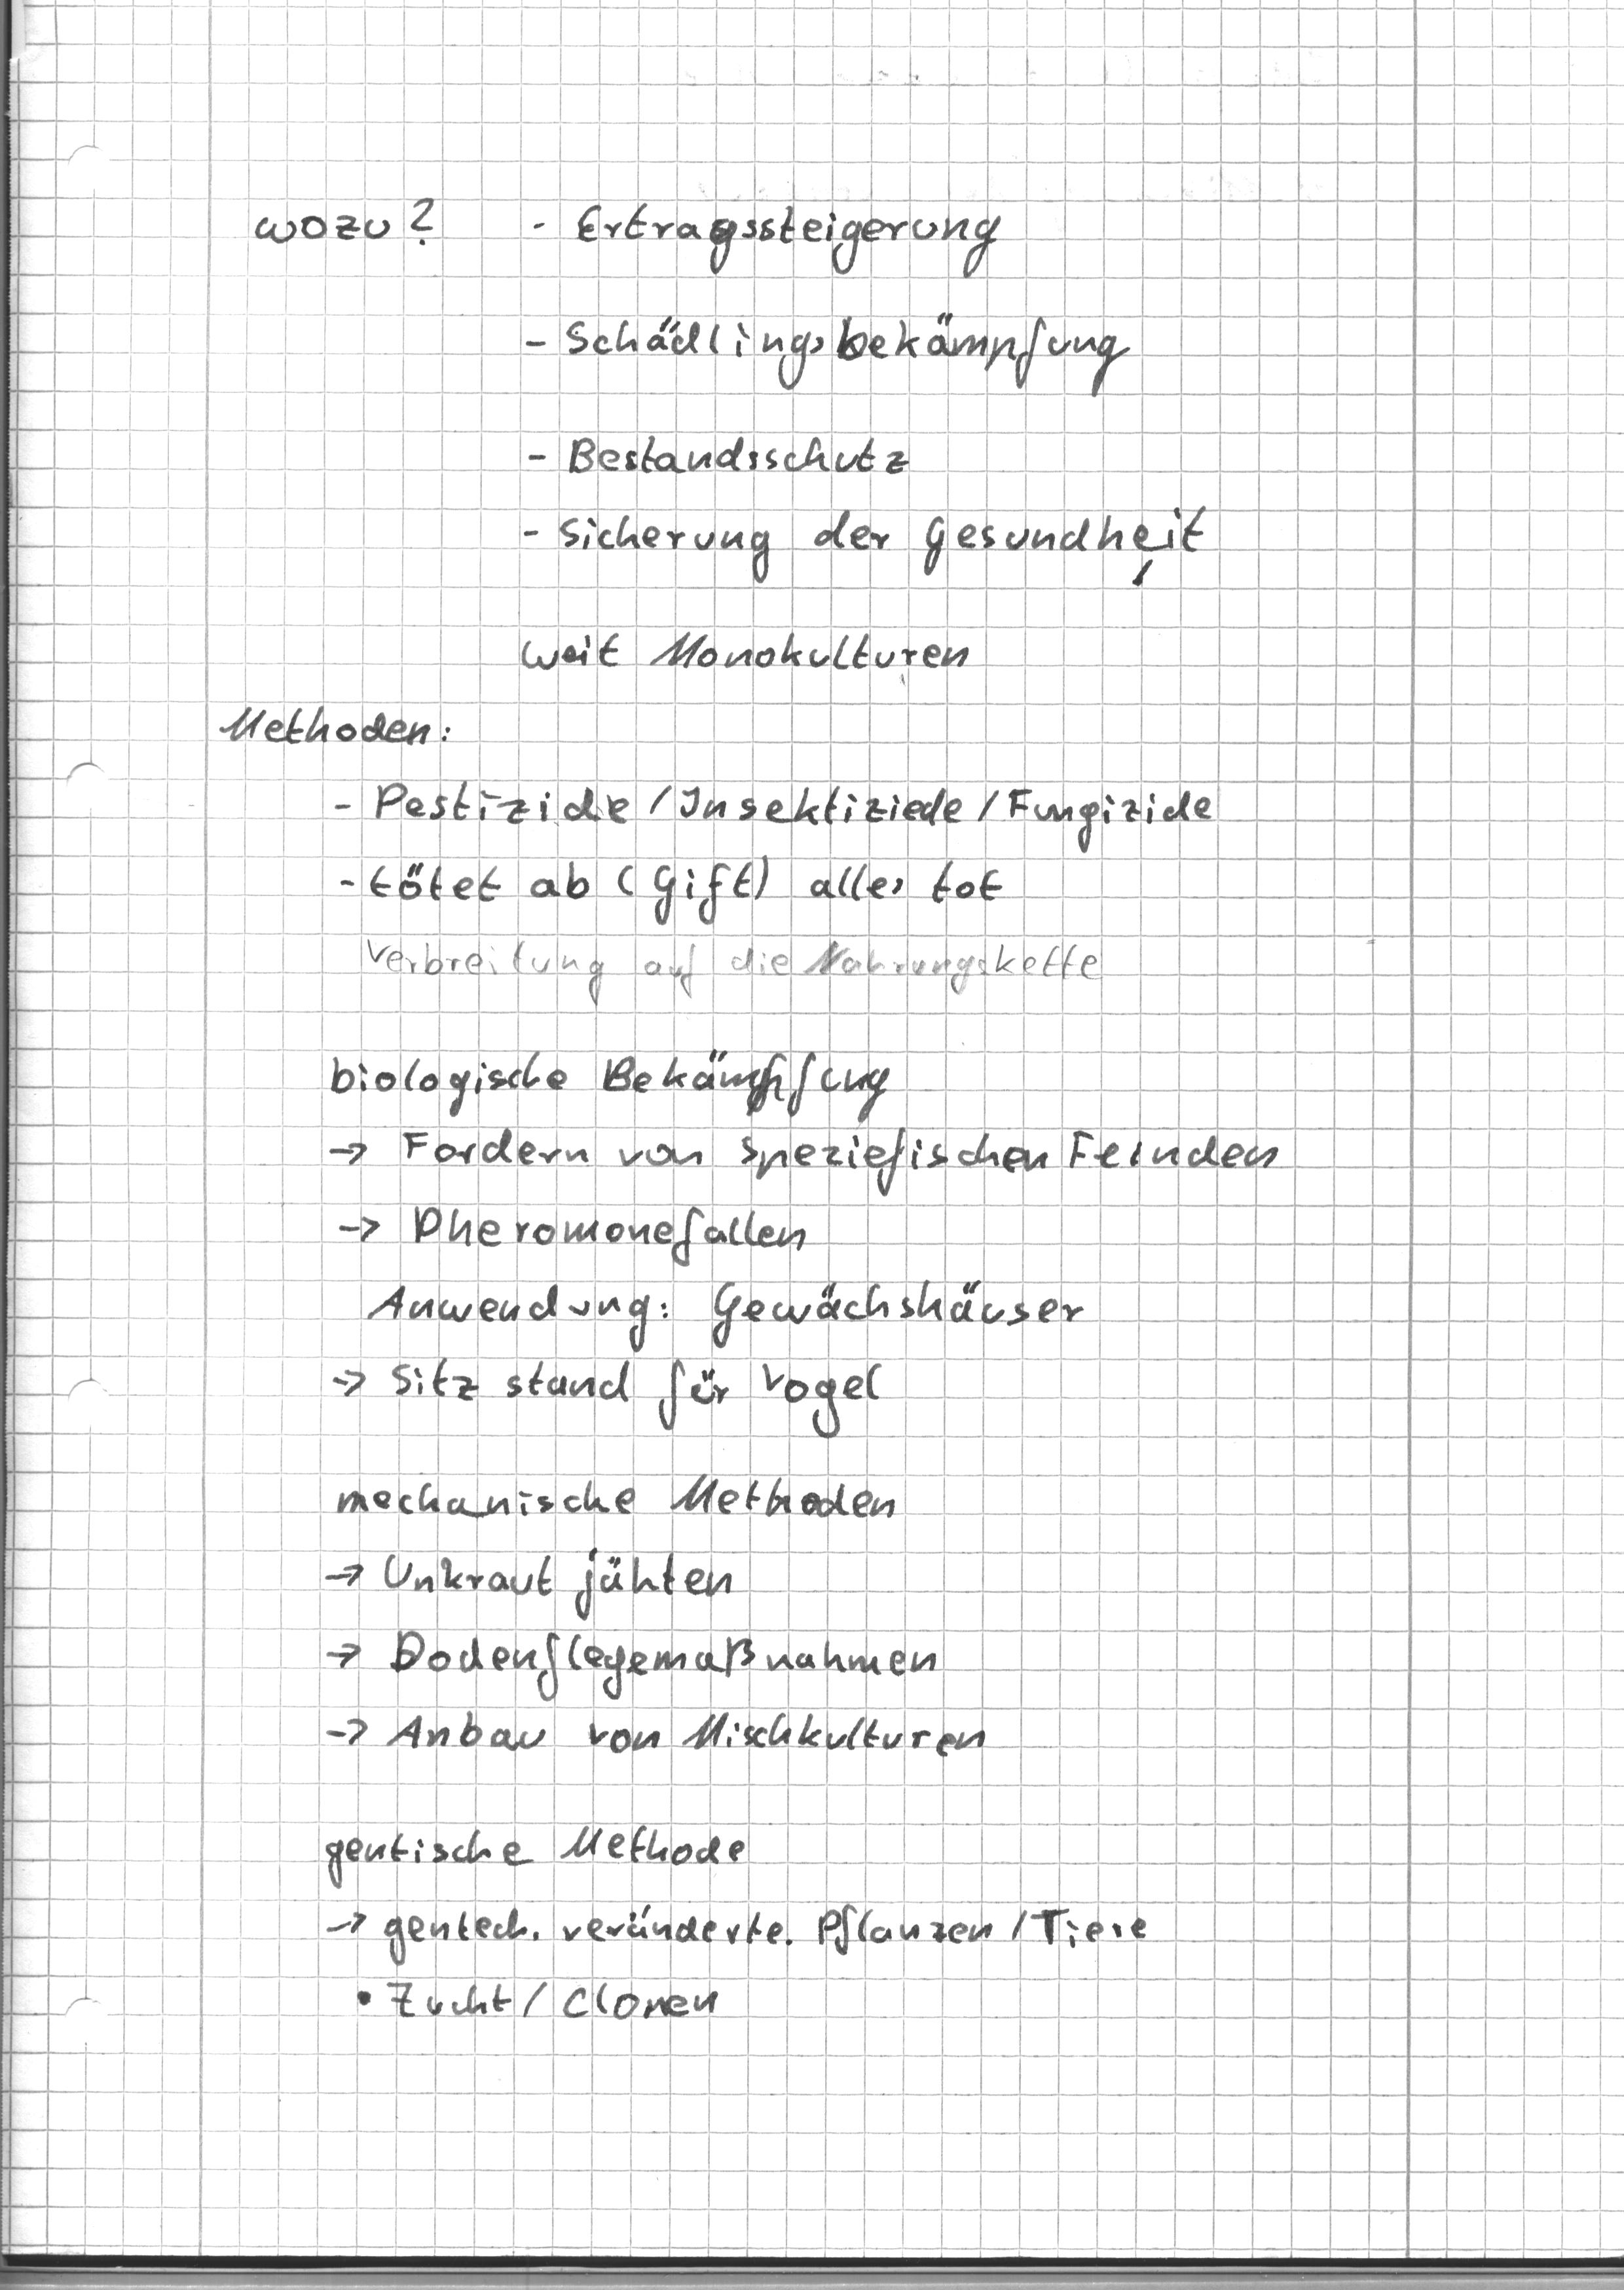 wozu? - Ertragssteigerung
- Schädlingsbekämpfung
- Bestandsschutz
- Sicherung der Gesundheit
weit Monokulturen
Methoden:
- Pestizide / Insektiziede / Fungizide
- tötet ab (Gift) alles tot
Verbreitung auf die Nahrungskette
biologische Bekämpfung
→ Fordern von speziefischen Feinden
→ Pheromonefallen
Anwendung: Gewächshäuser
→ Sitz stand für Vogel
mechanische Methoden
→ Unkraut jähten
→ Bodenflegemaßnahmen
→ Anbau von Mischkulturen
gentische Methode
→ gentech. veränderte. Pflanzen / Tiere
• Zucht / Clonen